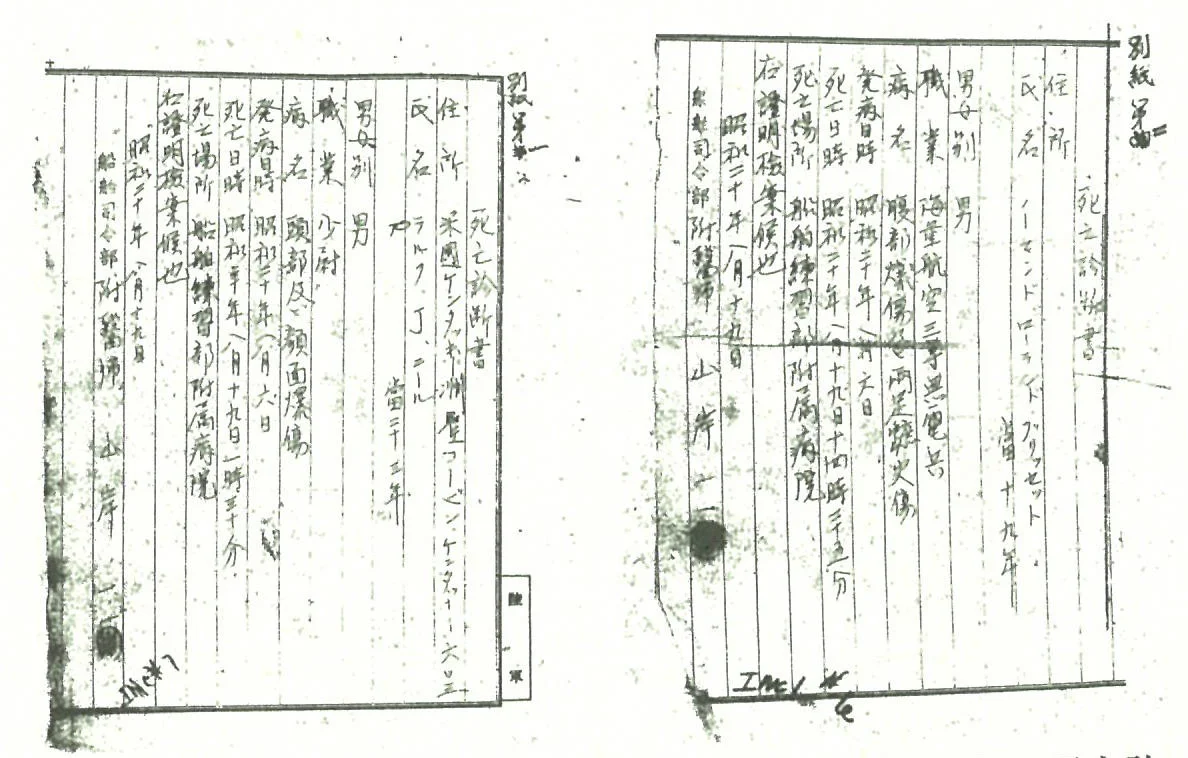 別紙第二
死亡診断書
住所
氏名 ノーマンド・ローランド・ブリセット
當十九年
男女別 男
職業 海軍航空三等無電兵
病名 腹部爆傷 両足 火傷
発病日時 昭和二十年八月六日
死亡日時 昭和二十年八月十九日十四時三十五分
死亡場所 船舶練習部附属病院
右證明検案候也
昭和二十年八月十九日
船舶司令部附醫師 山岸一
INC 6
別紙第一
死亡診断書
住所 米國ケンタッキー洲 コービン・ケンタッキー六
氏名 ラルフ J、ニール
當二十三年
男女別 男
職業 少尉
病名 頭部及顔面爆傷
発病日時 昭和二十年八月六日
死亡日時 昭和二十年八月十九日一時三十分
死亡場所 船舶練習部附属病院
右證明検案候也
昭和二十年八月十九日
船舶司令部附醫師 山岸一
陸軍
INC 7